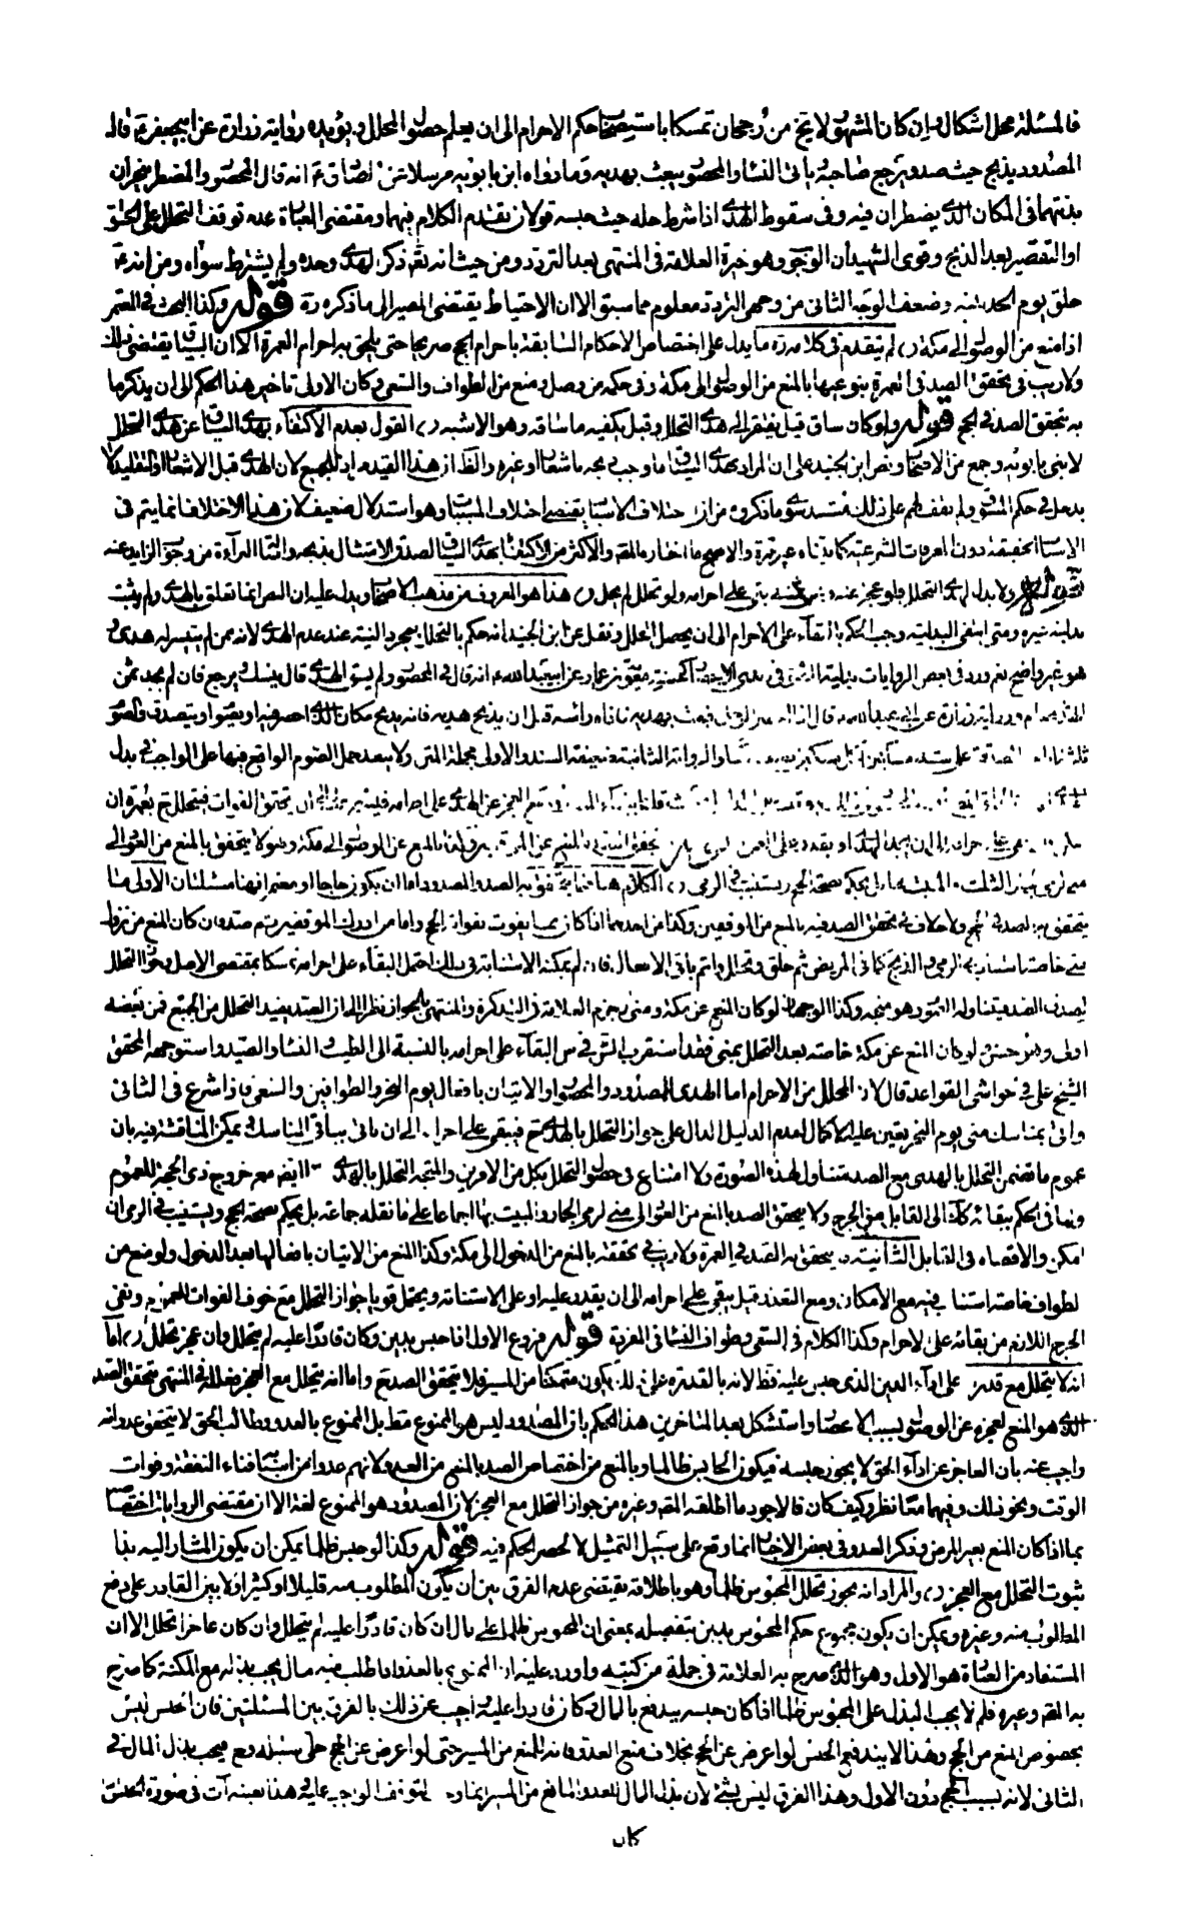 فالمسئلة محل اشكال وان كان المشهور لا يخ من رجحان تمسكا باستصحاب حكم الاحرام الى ان يعلم حصول المحلل ويؤيده رواية زرارة عن ابيجعفر ع قال
المصدود يذبح حيث صد ويرجع صاحبه ياتى النساء والمحصور يبعث بهديه وما رواه ابن بابويه مرسلا عن الصادق ع انه قال المحصور والمضطر ينحران
بدنتهما فى المكان الذى يضطران فيه وفى سقوط الهدى اذا شرط حله حيث حبسه قولان تقدم الكلام فيهما ومقتضى العبارة عدم توقف التحلل على الحلق
او التقصير بعد الذبح وقوى الشهيدان الوجوب وهو خيرة العلامة فى المنتهى بعد التردد ومن حيث انه تع ذكر الهدى وحده ولم يشترط سواه ومن انه ع
حلق يوم الحديبية وضعف الوجه الثانى من وجهى التردد معلوم مما سبق الا ان الاحتياط يقتضى المصير الى ما ذكره ره قوله وكذا البحث فى المعتمر
اذا منع من الوصول الى مكة لم يتقدم فى كلامه ره ما يدل على اختصاص الاحكام السابقة باحرام الحج صريحا حتى يلحق به احرام العمرة الا ان السياق يقتضى ذلك
ولا ريب فى تحقق الصد فى العمرة بنوعيها بالمنع من الوصول الى مكة وفى حكمه من وصل ومنع من الطواف والسعى وكان الاولى تاخير هذا الحكم الى ان يذكر ما
به يتحقق الصد فى الحج قوله ولو كان ساق قيل يفتقر الى هدى التحلل وقيل يكفيه ما ساقه وهو الاشبه القول بعدم الاكتفاء بهدى السياق عن هدى التحلل
لابنى بابويه وجمع من الاصحاب ونص ابن الجنيد على ان المراد بهدى السياق ما وجب ذبحه باشعار او غيره والظ ان هذا القيد مراد للجميع لان الهدى قبل الاشعار او التقليد لا
يدخل فى حكم المسوق ولم نقف لهم على ذلك مستند سوى ما ذكروه من ان اختلاف الاسباب يقتضى اختلاف المسببات وهو استدلال ضعيف لان هذا الاختلاف انما يتم فى
الاسباب الحقيقية دون المعرفات الشرعية كما بيناه غير مرة والاصح ما اختاره المص والاكثر من الاكتفاء بهدى السياق لصدق الامتثال بذبحه واصالة البراءة من وجوب الزايد عنه
قوله ولا بدل لهدى التحلل فلو عجز عنه وعن ثمنه بقى على احرامه ولو تحلل لم يحل هذا هو المعروف من مذهب الاصحاب ويدل عليه ان النص انما تعلق بالهدى ولم يثبت
بدلية غيره ومتى انتفى البدلية وجب الحكم بالبقاء على الاحرام الى ان يحصل المحلل ونقل عن ابن الجنيد انه حكم بالتحلل بمجرد النية عند عدم الهدى لانه ممن لم يتيسر له هدى و
هو غير واضح نعم ورد فى بعض الروايات بدلية الصوم فى هدى الاحصار كحسنة معوية بن عمار عن ابيعبدالله ع انه قال فى المحصور ولم يسق الهدى قال ينسك ويرجع فان لم يجد ثمن
زرارة عن ابى عبدالله ع قال اذا احصر الرجل فبعث بهديه فاذاه راسه قبل ان يذبح هديه فانه يذبح مكان الذى احصر فيه او يصوم او يتصدق والصوم
ثلثة ايام والصدقة على ستة مساكين والرواية الثانية ضعيفة السند والاولى مجملة المتن ولا يبعد حمل الصوم الواقع فيها على الواجب فى بدل
مع العجز عن الهدى على احرامه فليستمر يتحقق الفوات فيتحلل ح بعمرة ان
يتحقق الصد فى الحج ولا خلاف فى تحقق الصد فيه بالمنع من الموقفين وكذا من احدهما اذا كان مما يفوت بفواته الحج واما من ادرك الموقفين ثم صد فان كان المنع من نزول
منى خاصة استناب فى الرمى والذبح كما فى المريض ثم حلق وتحلل واتم باقى الافعال فان لم يمكنه الاستنابة فى ذلك احتمل البقاء على احرامه تمسكا بمقتضى الاصل وجواز التحلل
لصدق الصد فيتناوله العموم وهو متجه وكذا الوجهان لو كان المنع عن مكة ومنى وجزم العلامة فى التذكرة والمنتهى بالجواز نظرا الى ان الصد يفيد التحلل من الجميع فمن بعضه
اولى وهو حسن ولو كان المنع عن مكة خاصة بعد التحلل بمنى فقد استقرب الش فى س البقاء على احرامه بالنسبة الى الطيب والنساء والصيد واستوجهه المحقق
الشيخ على فى حواشى القواعد قال لان المحلل من الاحرام اما الهدى للمصدود والمحصور او الاتيان بافعال يوم النحر والطوافين والسعى فاذا شرع فى الثانى
واتى بمناسك منى يوم النحر تعين عليه الاكمال لعدم الدليل الدال على جواز التحلل بالهدى ح فيبقى على احرامه الى ان ياتى بباقى المناسك ويمكن المناقشة فيه بان
عموم ما تضمن التحلل بالهدى مع الصد متناول لهذه الصورة ولا امتناع فى حصول التحلل بكل من الامرين والمتجه التحلل بالهدى ايض مع خروج ذى الحجة للعموم
ولا يتحقق الصد بالمنع من العود الى منى لرمى الجمار والمبيت بها اجماعا على ما نقله جماعة بل يحكم بصحة الحج ويستنيب فى الرمى ان
امكن والا قضاه فى القابل الثانية يتحقق به الصد فى العمرة ولا ريب فى تحققه بالمنع من الدخول الى مكة وكذا المنع من الاتيان بافعالها بعد الدخول ولو منع من
الطواف خاصة استناب فيه مع الامكان ومع التعذر قيل يبقى على احرامه الى ان يقدر عليه او على الاستنابة ويحتمل قويا جواز التحلل مع خوف الفوات للعموم ونفى
الحرج اللازم من بقائه على الاحرام وكذا الكلام فى السعى وطواف النساء فى المفردة قوله فروع الاول اذا حبس بدين وكان قادرا عليه لم يتحلل وان عجز تحلل اما
انه لا يتحلل مع قدرته على اداء الدين الذى حبس عليه فظ لانه بالقدرة على ذلك يكون متمكنا من المسير فلا يتحقق الصد ح واما انه يتحلل مع العجز فعلله فى المنتهى بتحقق الصد
الذى هو المنع لعجزه عن الوصول بسبب الاعسار واستشكل بعد المتاخرين هذا الحكم بان المصدود ليس هو الممنوع مط بل الممنوع بالعدو وطالب الحق لا يتحقق عدوانه
واجيب عنه بان العاجز عن اداء الحق لا يجوز حبسه فيكون الحابس ظالما وبالمنع من اختصاص الصد بالمنع من العدو لانهم عدوا من اسبابه فناء النفقة وفوات
الوقت ونحو ذلك وفيهما معا نظر وكيف كان فالاجود ما اطلقه المص وغيره من جواز التحلل مع العجز لان المصدود هو الممنوع لغة الا ان مقتضى الروايات اختصاصه
بما اذا كان المنع بغير المرض وذكر العدو فى بعض الاخبار انما وقع على سبيل التمثيل لا لحصر الحكم فيه قوله وكذا لو حبس ظلما يمكن ان يكون المشار اليه بذا
ثبوت التحلل مع العجز والمراد انه يجوز تحلل المحبوس ظلما وهو باطلاقه يقتضى عدم الفرق بين ان يكون المطلوب منه قليلا او كثيرا ولا بين القادر على دفع
المطلوب منه وغيره ويمكن ان يكون مجموع حكم المحبوس بدين بتفصيله بمعنى ان المحبوس ظلما على مال ان كان قادرا عليه لم يتحلل وان كان عاجزا تحلل الا ان
المستفاد من العبارة هو الاول وهو الذى صرح به العلامة فى جملة من كتبه واورد عليه ان الممنوع بالعدو اذا طلب منه مال يجب بذله مع المكنة كما صرح
به المص وغيره فلم لا يجب البذل على المحبوس ظلما اذا كان حبسه يندفع بالمال وكان قادرا عليه واجيب عن ذلك بالفرق بين المسئلتين فان الحبس ليس
بخصوص المنع من الحج ولهذا لا يندفع الحبس لو اعرض عن الحج بخلاف منع العدو فانه للمنع من المسير حتى لو اعرض عن الحج خلى سبيله وح فيجب بذل المال فى
الثانى لانه بسبب الحج دون الاول وهذا الفرق ليس بشئ لان بذل المال للعدو المانع من المسير انما وجب لتوقف الواجب عليه وهذا بعينه آت فى صورة الحبس
كان